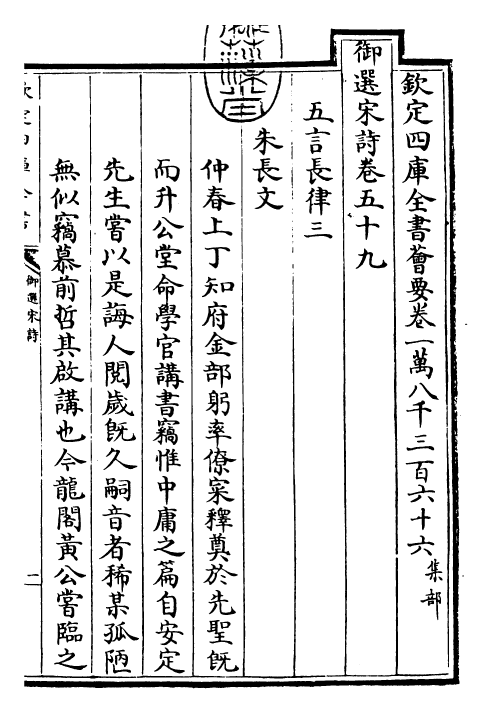 欽定四庫全書薈要卷一萬八千三百六十六 集部
御選宋詩卷五十九
五言長律三
朱長文
仲春上丁知府金部躬率僚寀釋奠於先聖既
而升公堂命學官講書竊惟中庸之篇自安定
先生嘗以是誨人閱歲既久嗣音者稀某孤陋
無似竊慕前哲其啟講也今龍閣黃公嘗臨之
御選宋詩
一